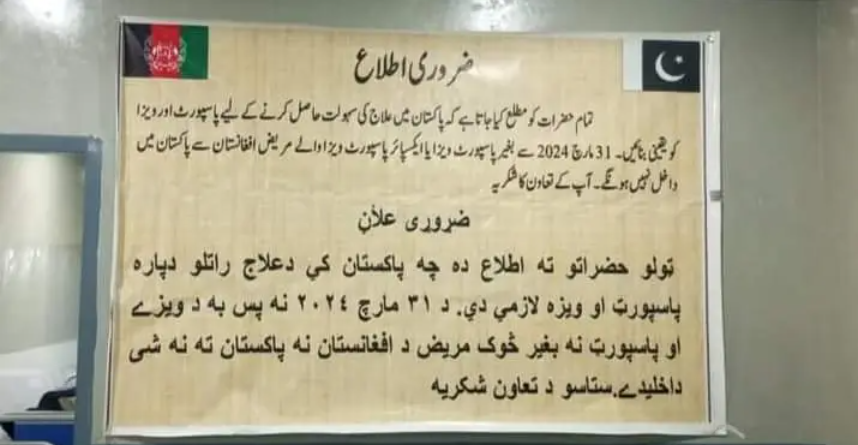 ضروری اطلاع
تمام حضرات کو مطلع کیا جاتا ہے کہ پاکستان میں علاج کی سہولت حاصل کرنے کے لیے پاسپورٹ اور ویزا
کو یقینی بنائیں۔ 31 مارچ 2024 سے بغیر پاسپورٹ ویزا یا ایکسپائر پاسپورٹ ویزا والے مریض افغانستان سے پاکستان میں
داخل نہیں ہونگے۔ آپ کے تعاون کا شکریہ
ضروری علاݨ
ټولو حضراتو ته اطلاع ده چه پاکستان کي دعلاج راتلو دپاره
پاسپورټ او ویزه لازمي دي. د ٣١ مارچ ٢٠٢٤ نه پس به د ویزے
او پاسپورټ نه بغیر څوک مریض د افغانستان نه پاکستان ته نه شی
داخلیدے.ستاسو د تعاون شکریه